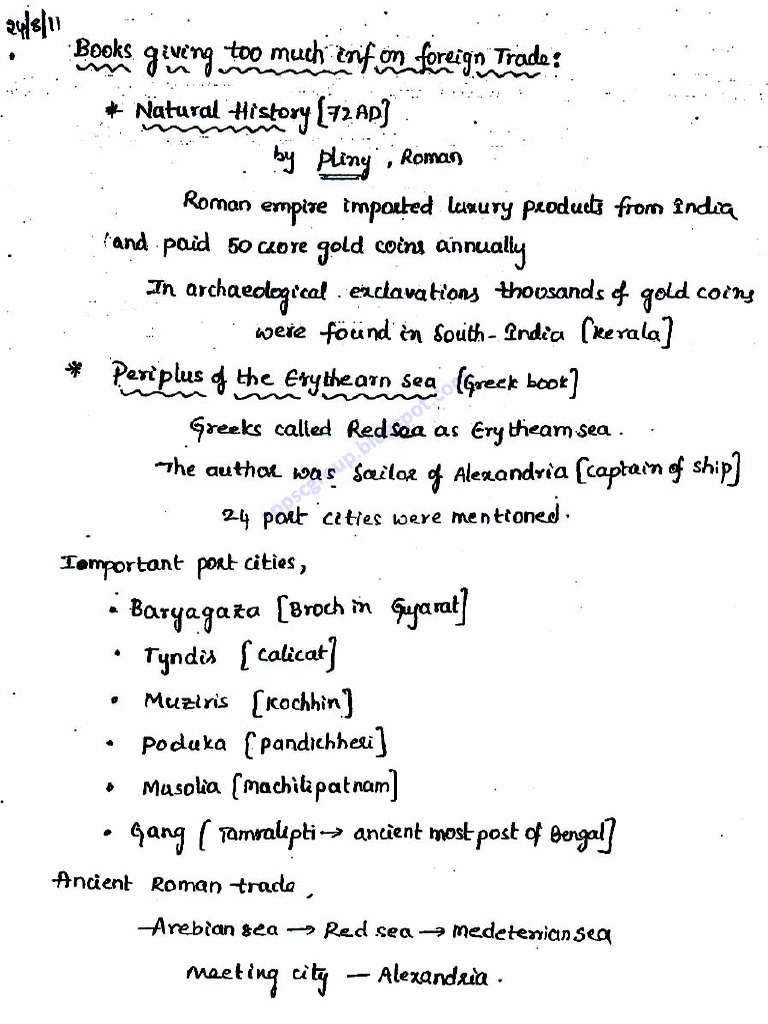 24/8/11
Books giving too much inf on foreign Trade:
* Natural History [72AD]
by Pliny, Roman
Roman empire imported luxury products from India
and paid 50 crore gold coins annually
In archaeological exclavations thousands of gold coins
were found in South-India [Kerala]
* Periplus of the Erythearn sea [Greek book]
Greeks called Redsea as Erythearnsea.
The author was Sailor of Alexandria [captain of ship]
24 port cities were mentioned.
Iomportant port cities,
• Baryagaza [Broch in Gujarat]
• Tyndis [calicat]
• Muziris [Kochhin]
• Poduka [pandichheri]
• Musolia [machilipatnam]
• Gang [Tamralipti → ancient most post of Bengal]
Ancient Roman trade,
Arebian sea → Red sea → medeterriansea
meeting city — Alexandria.